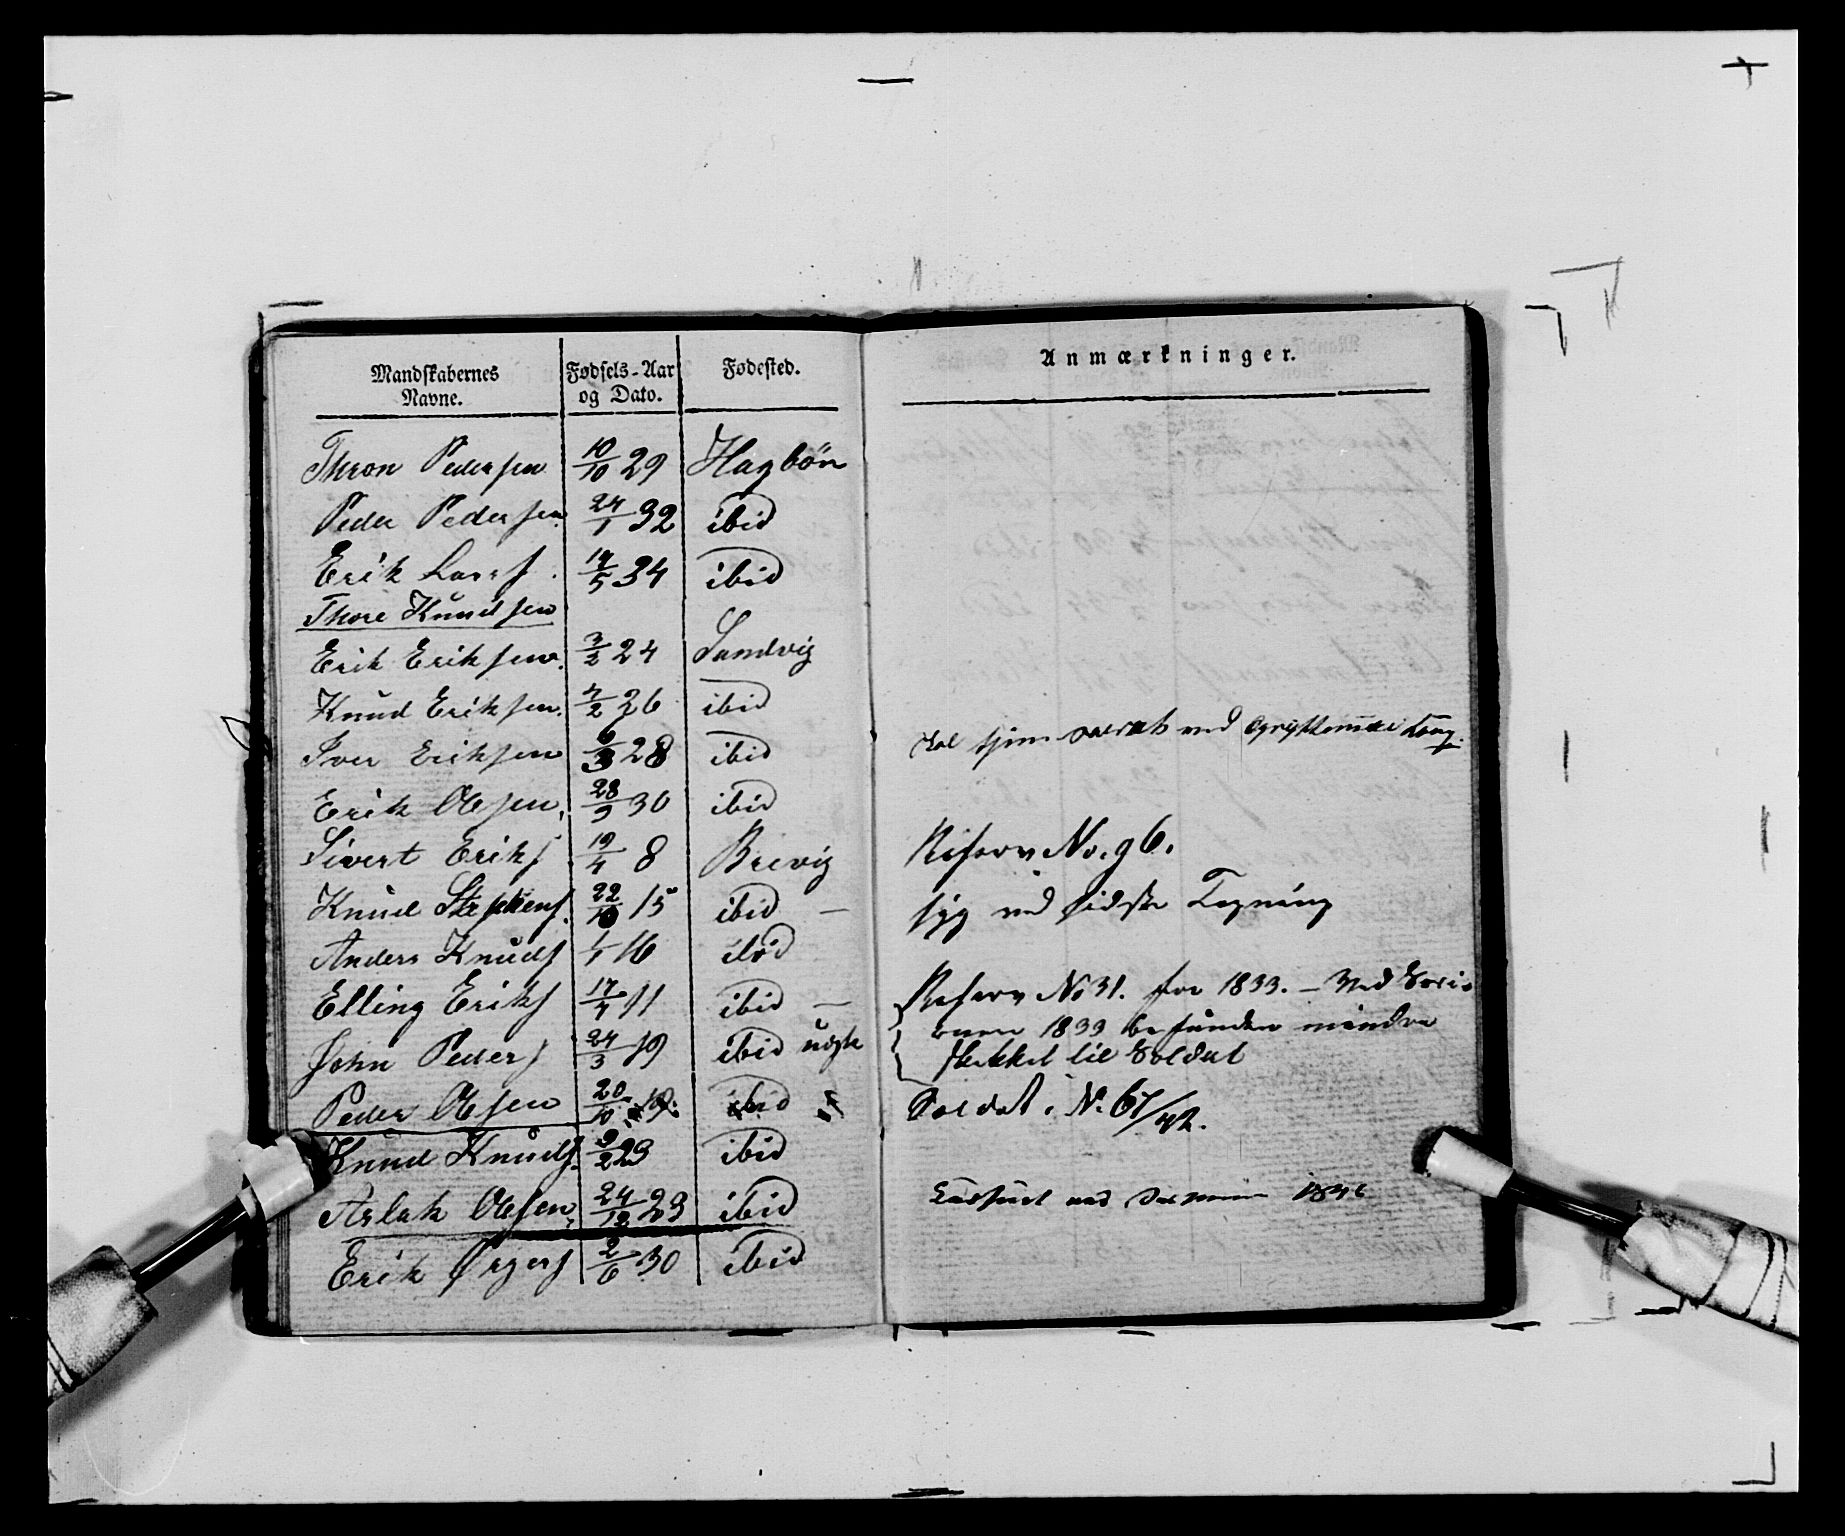 Mandskabernes Navne. Fødsels-Aar og Dato. Fødested.
Thron Pedersen 10/10 29 Hagbön
Peder Pedersen 24/1 32 ibid
Erik Larsf. 17/5 34 ibid
Thore Knudsen
Erik Eriksen. 3/2 24 Sandvig
Knud Eriksen. 4/2 26 ibid
Iver Eriksen 6/3 28 ibid
Erik Olesen. 28/9 30 ibid
Sivert Eriks 19/4 8 Brevig
Knud Stephens. 22/10 15 ibid —
Anders Knuds 1/1 16 ibid
Elling Eriks 17/4 11 ibid —
John Peders 24/3 19 ibid
Peder Olesen 20/10 19. ibid
Knud Knuds. 9/2 23 ibid
Aslak Olesen. 24/12 23 ibid
Erik 2/6 30 ibid
Anmærkninger.
Skal tjene ved
Reserv No. 96.
syg ved sidste Tegning
Reserv No 31. for 1833. — Ved
1833 befunden mindre
skikket til Soldat
Soldat i No. 67/42.
ved Sessionen